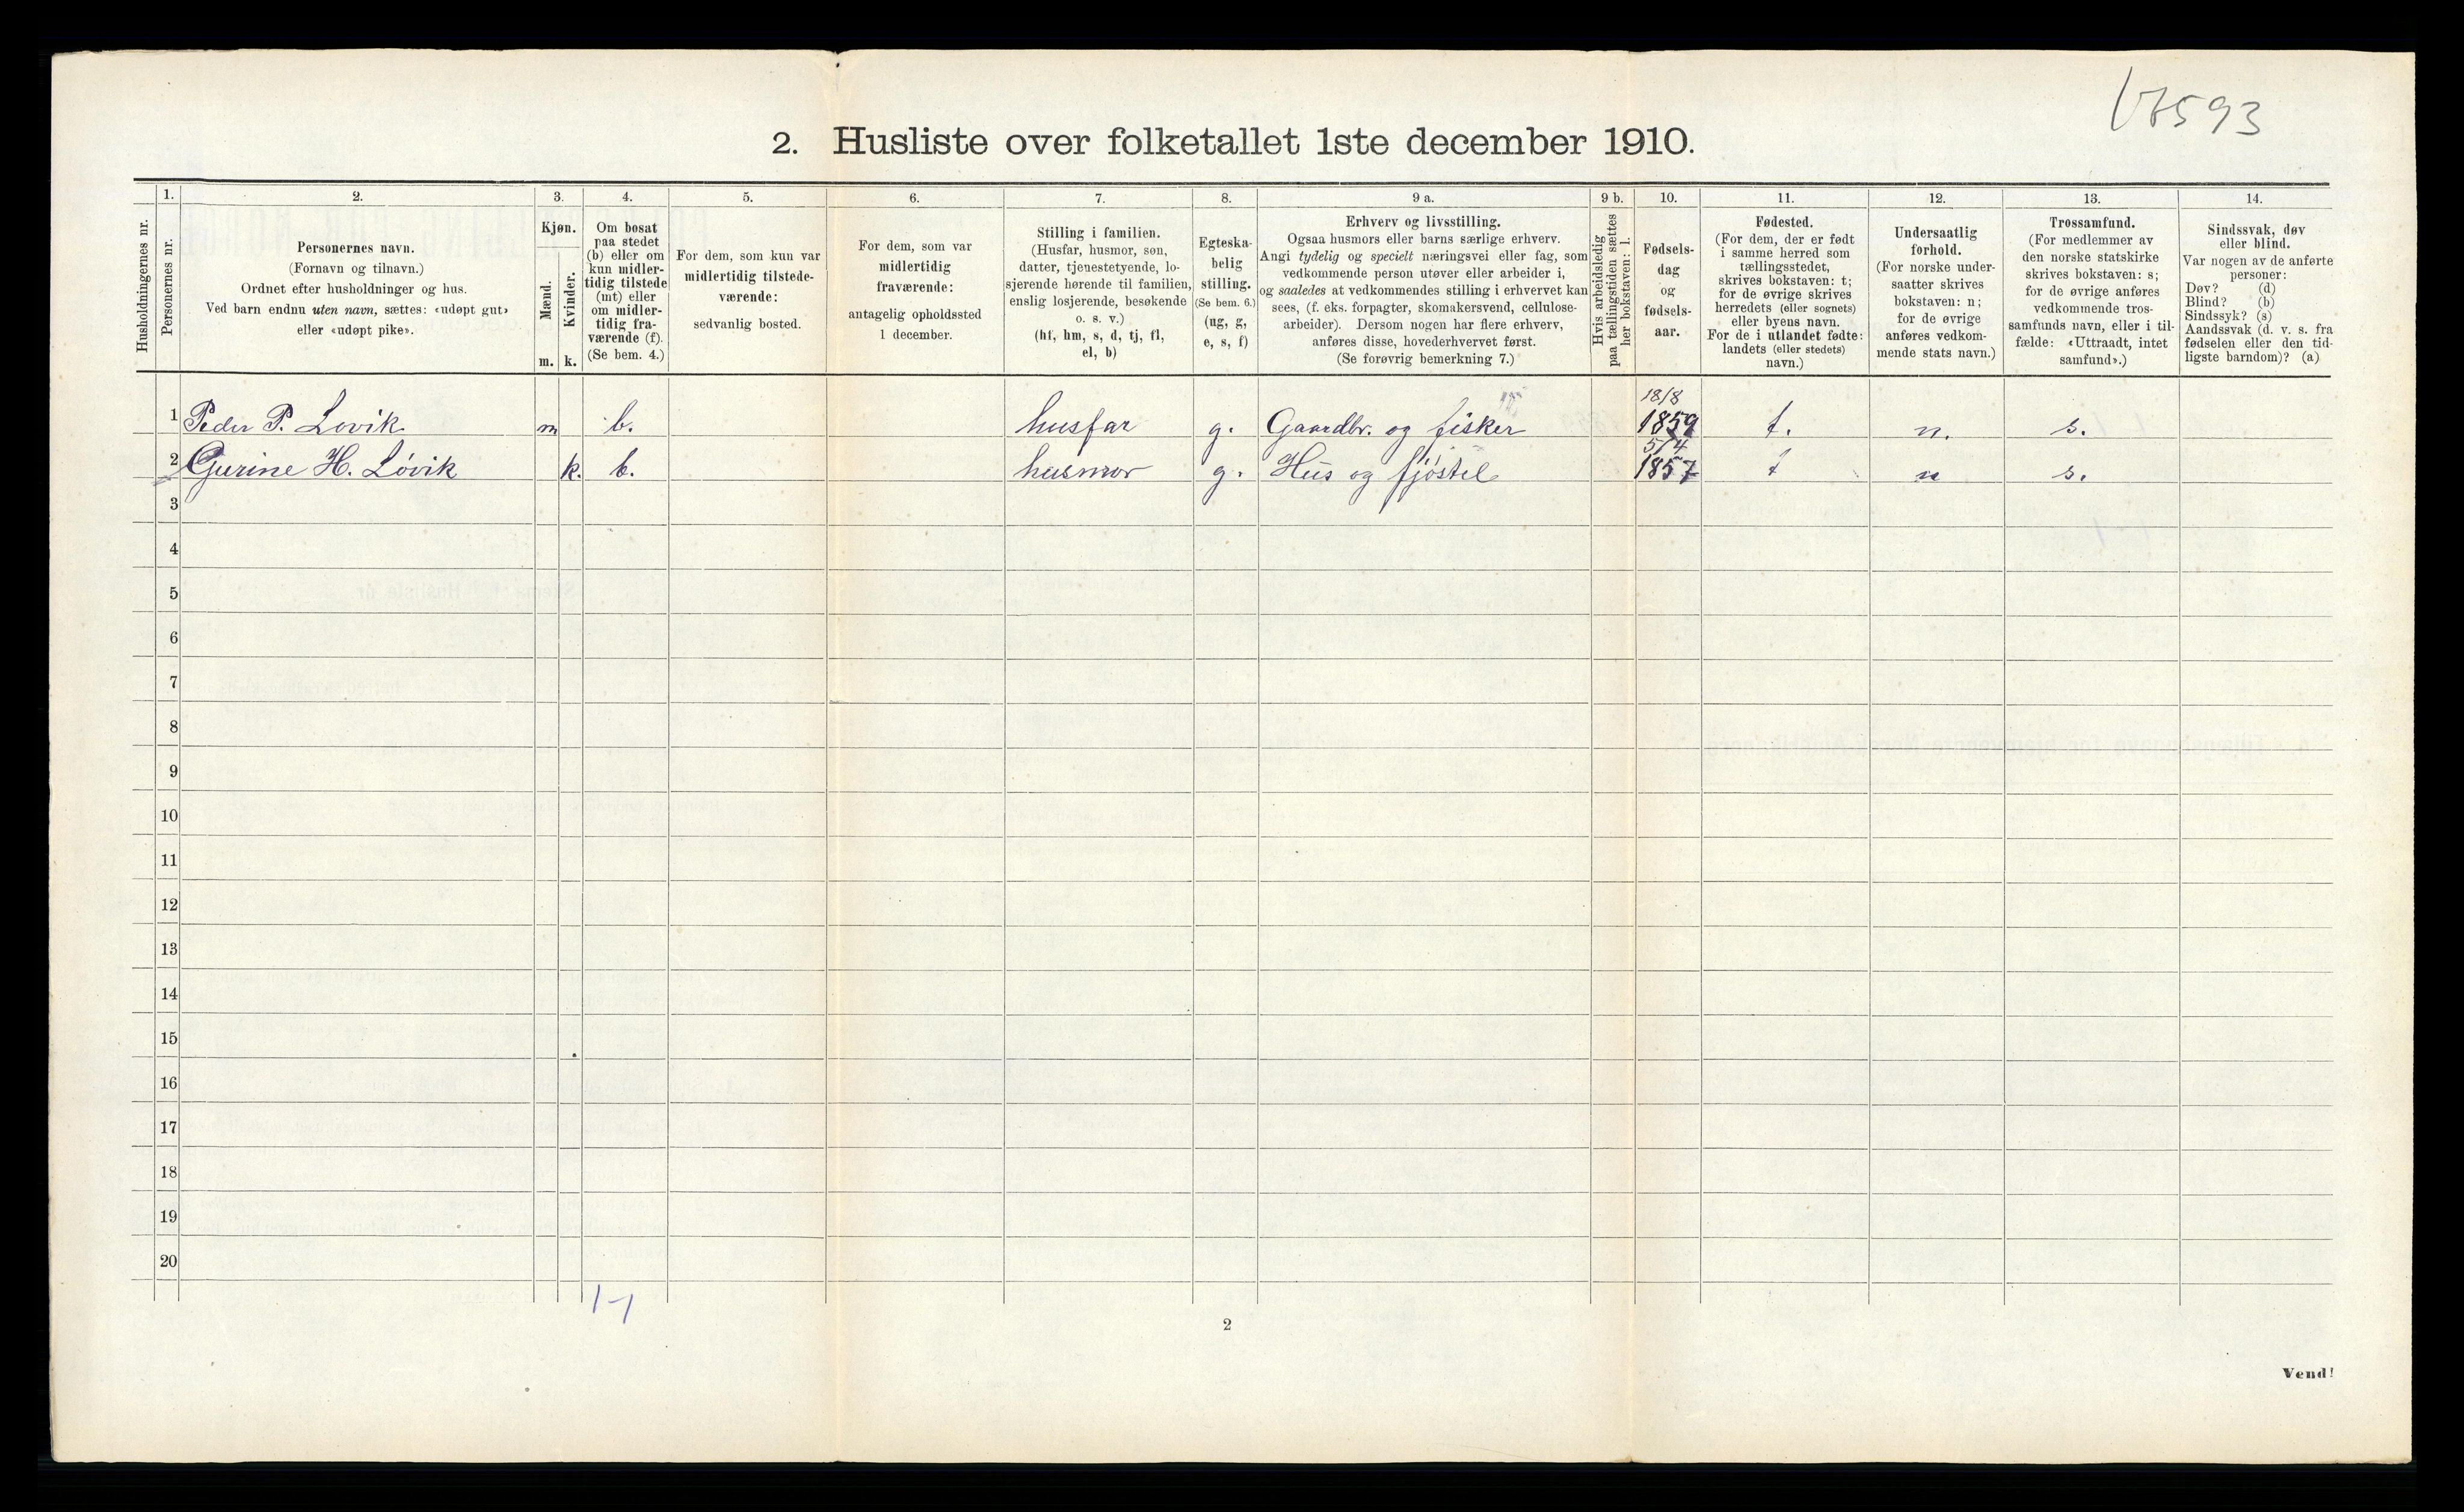 V7593
2. Husliste over folketallet 1ste december 1910.
Husholdningernes nr.
1.
Personernes nr.
2.
Personernes navn.
(Fornavn og tilnavn.)
Ordnet efter husholdninger og hus.
Ved barn endnu uten navn, sættes: «udøpt gut»
eller «udøpt pike».
3.
Kjøn.
Mænd.
Kvinder.
m. k.
4.
Om bosat
paa stedet
(b) eller om
kun midler-
tidig tilstede
(mt) eller
om midler-
tidig fra-
værende (f).
(Se bem. 4.)
5.
For dem, som kun var
midlertidig tilstede-
værende:
sedvanlig bosted.
6.
For dem, som var
midlertidig
fraværende:
antagelig opholdssted
1 december.
7.
Stilling i familien.
(Husfar, husmor, søn,
datter, tjenestetyende, lo-
sjerende hørende til familien,
enslig losjerende, besøkende
o. s. v.)
(hf, hm, s, d, tj, fl,
el, b)
8.
Egteska-
belig
stilling.
(Se bem. 6.)
(ug, g,
e, s, f)
9 a.
Erhverv og livsstilling.
Ogsaa husmors eller barns særlige erhverv.
Angi tydelig og specielt næringsvei eller fag, som
vedkommende person utøver eller arbeider i,
og saaledes at vedkommendes stilling i erhvervet kan
sees, (f. eks. forpagter, skomakersvend, cellulose-
arbeider). Dersom nogen har flere erhverv,
anføres disse, hovederhvervet først.
(Se forøvrig bemerkning 7.)
9 b.
Hvis arbeidsledig
paa tællingstiden sættes
her bokstaven: l.
10.
Fødsels-
dag
og
fødsels-
aar.
11.
Fødested.
(For dem, der er født
i samme herred som
tællingsstedet,
skrives bokstaven: t;
for de øvrige skrives
herredets (eller sognets)
eller byens navn.
For de i utlandet fødte:
landets (eller stedets)
navn.)
12.
Undersaatlig
forhold.
(For norske under-
saatter skrives
bokstaven: n;
for de øvrige
anføres vedkom-
mende stats navn.)
13.
Trossamfund.
(For medlemmer av
den norske statskirke
skrives bokstaven: s;
for de øvrige anføres
vedkommende tros-
samfunds navn, eller i til-
fælde: «Uttraadt, intet
samfund».)
14.
Sindssvak, døv
eller blind.
Var nogen av de anførte
personer:
Døv? (d)
Blind? (b)
Sindssyk? (s)
Aandssvak (d. v. s. fra
fødselen eller den tid-
ligste barndom)? (a)
1 Peder P. Lovik m b. husfar g. Gaardbr. og fisker 18/8 1859 t. n. s.
2 Gurine H. Lóvik k. b. husmor g. Hus og fjóstel 5/4 1857 t n s.
3
4
5
6
7
8
9
10
11
12
13
14
15
16
17
18
19
20
1-1
2
Vend!